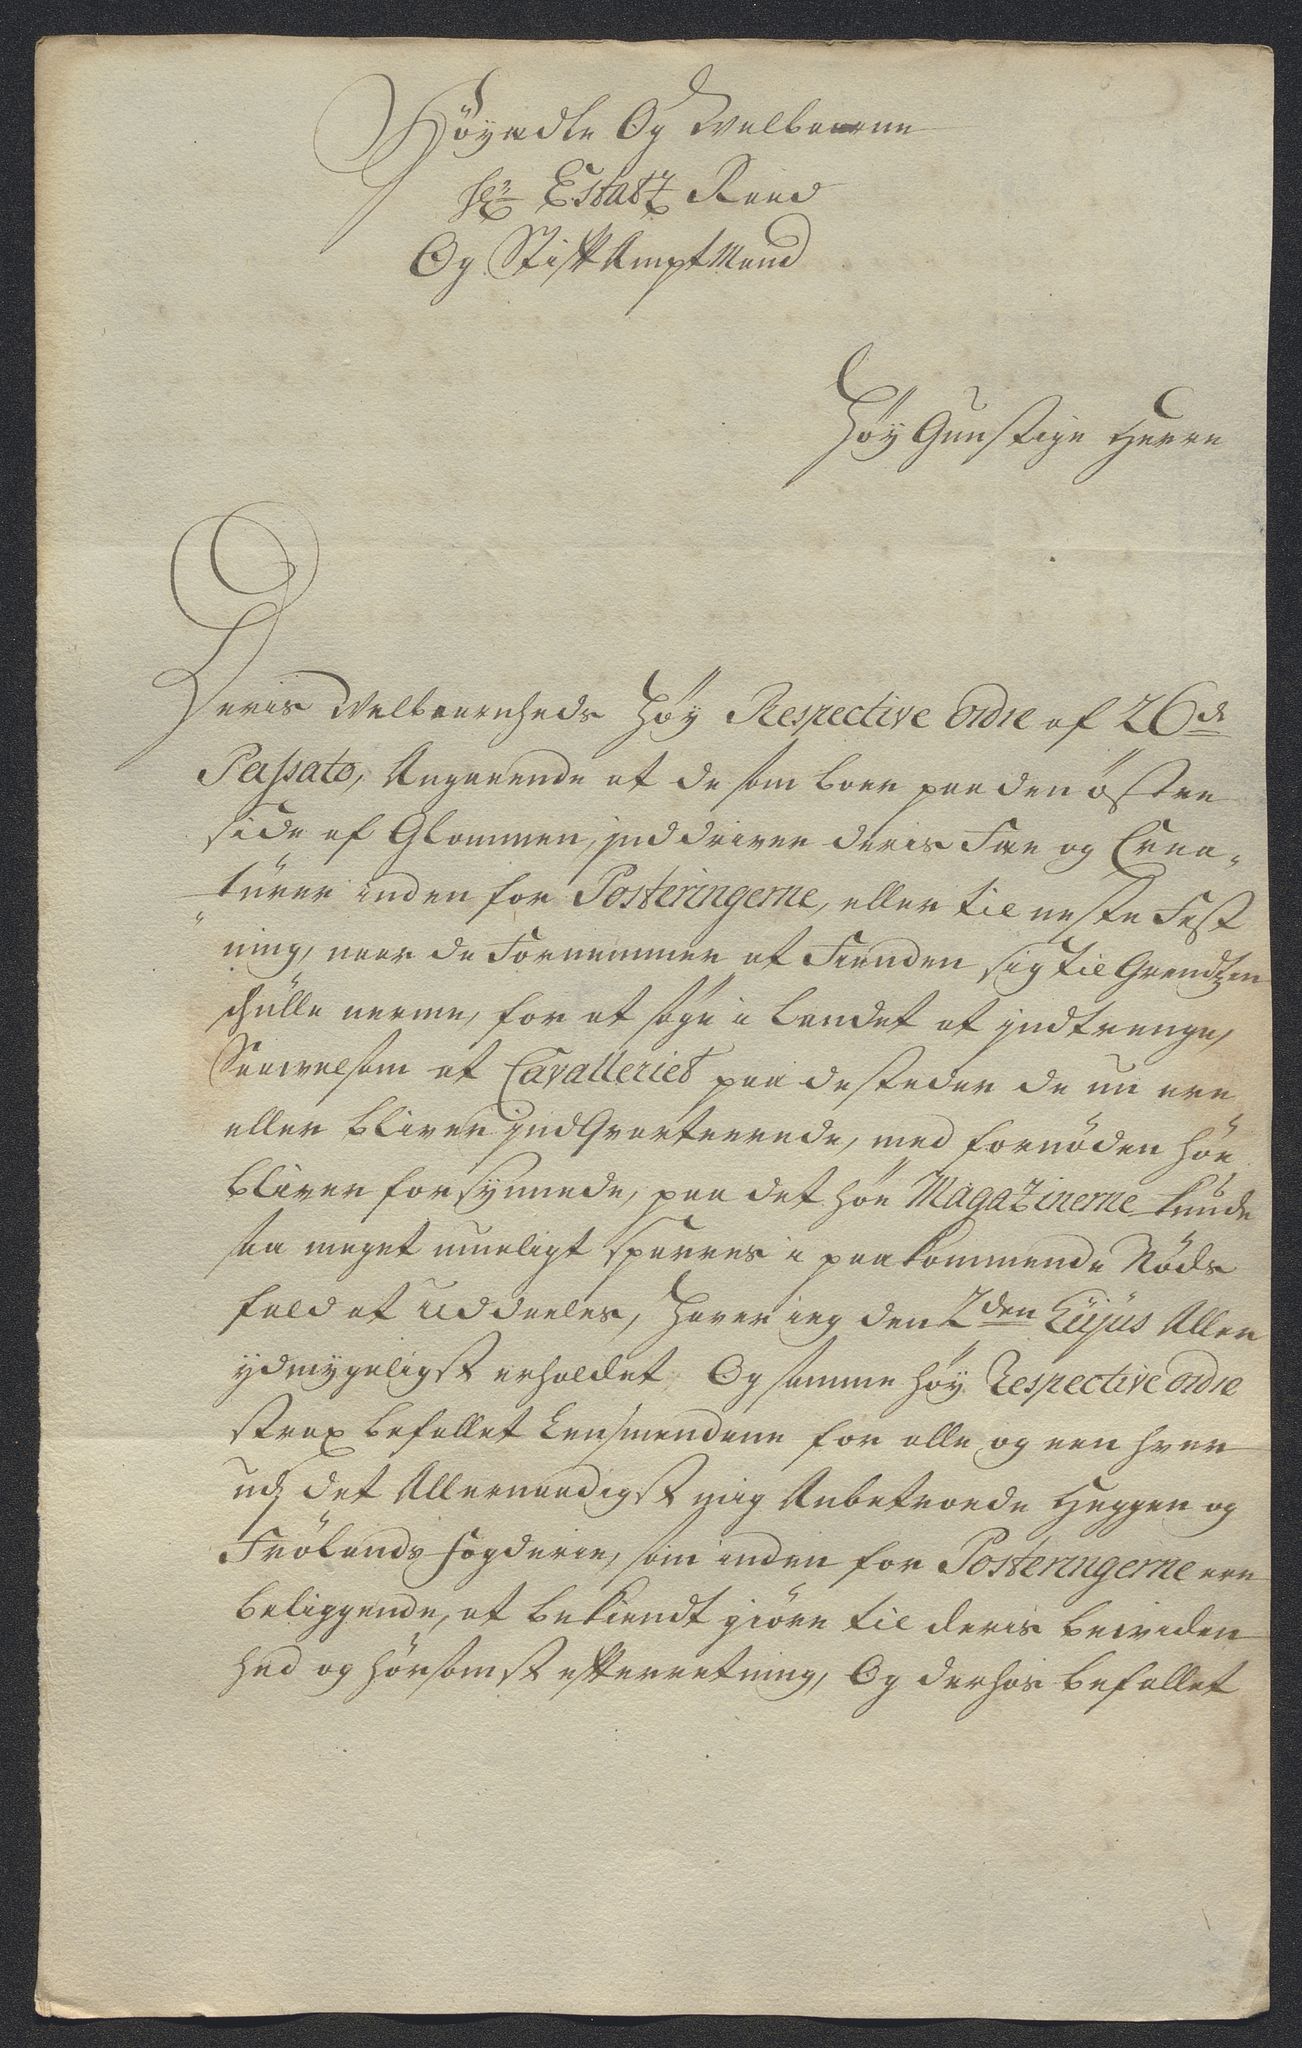 Høyædle Og Welbaarne
Hr: Estatz Raad
Og Stift Ampt Mand
Høy Gunstige Herre
Deris Welbaarnheds Høy Respective Ordre af 26de
Passato, Angaaende at de som boer paa den østre
side af Glommen, jnd driver deris Fæe og Crea-
türer inden for Posteringerne, eller til neste Fest
ning, naar de Fornemmer at Fienden sig til Grendtzen
schulle nerme, for at søge i Landet at jndtrenge,
Saavelsom at Cavalleriet paa de steder de nu ere
eller bliver jndqvarteerede, med fornøden Høe
bliver forsynnede, paa det Høe Magazinerne kunde
saa meget mueligt sparres i paakommende Nøds
fald at uddeeles, Haver ieg den 2den Hujus Aller
ydmygeligst erholdet Og samme høy Respective ordre
strax befallet Lensmendene for alle og een hver
udj det Allernaadigst mig Anbetroede Heggen og
Frølands fogderie, som inden for Posteringerne ere
beliggende, at bekiendt giøre til deris beviden
hed og hørsomst efterretning, Og derhos befallet